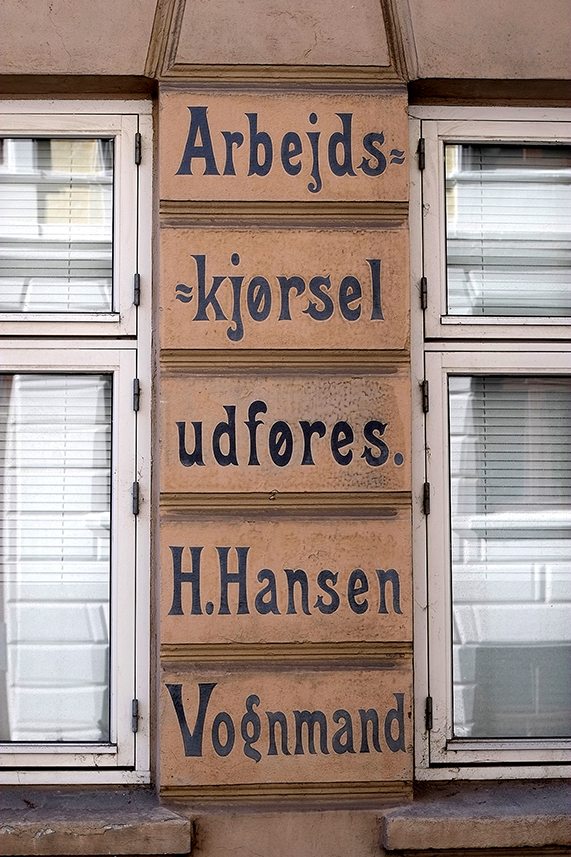 Arbejds=
=kjørsel
udføres.
H. Hansen
Vognmand